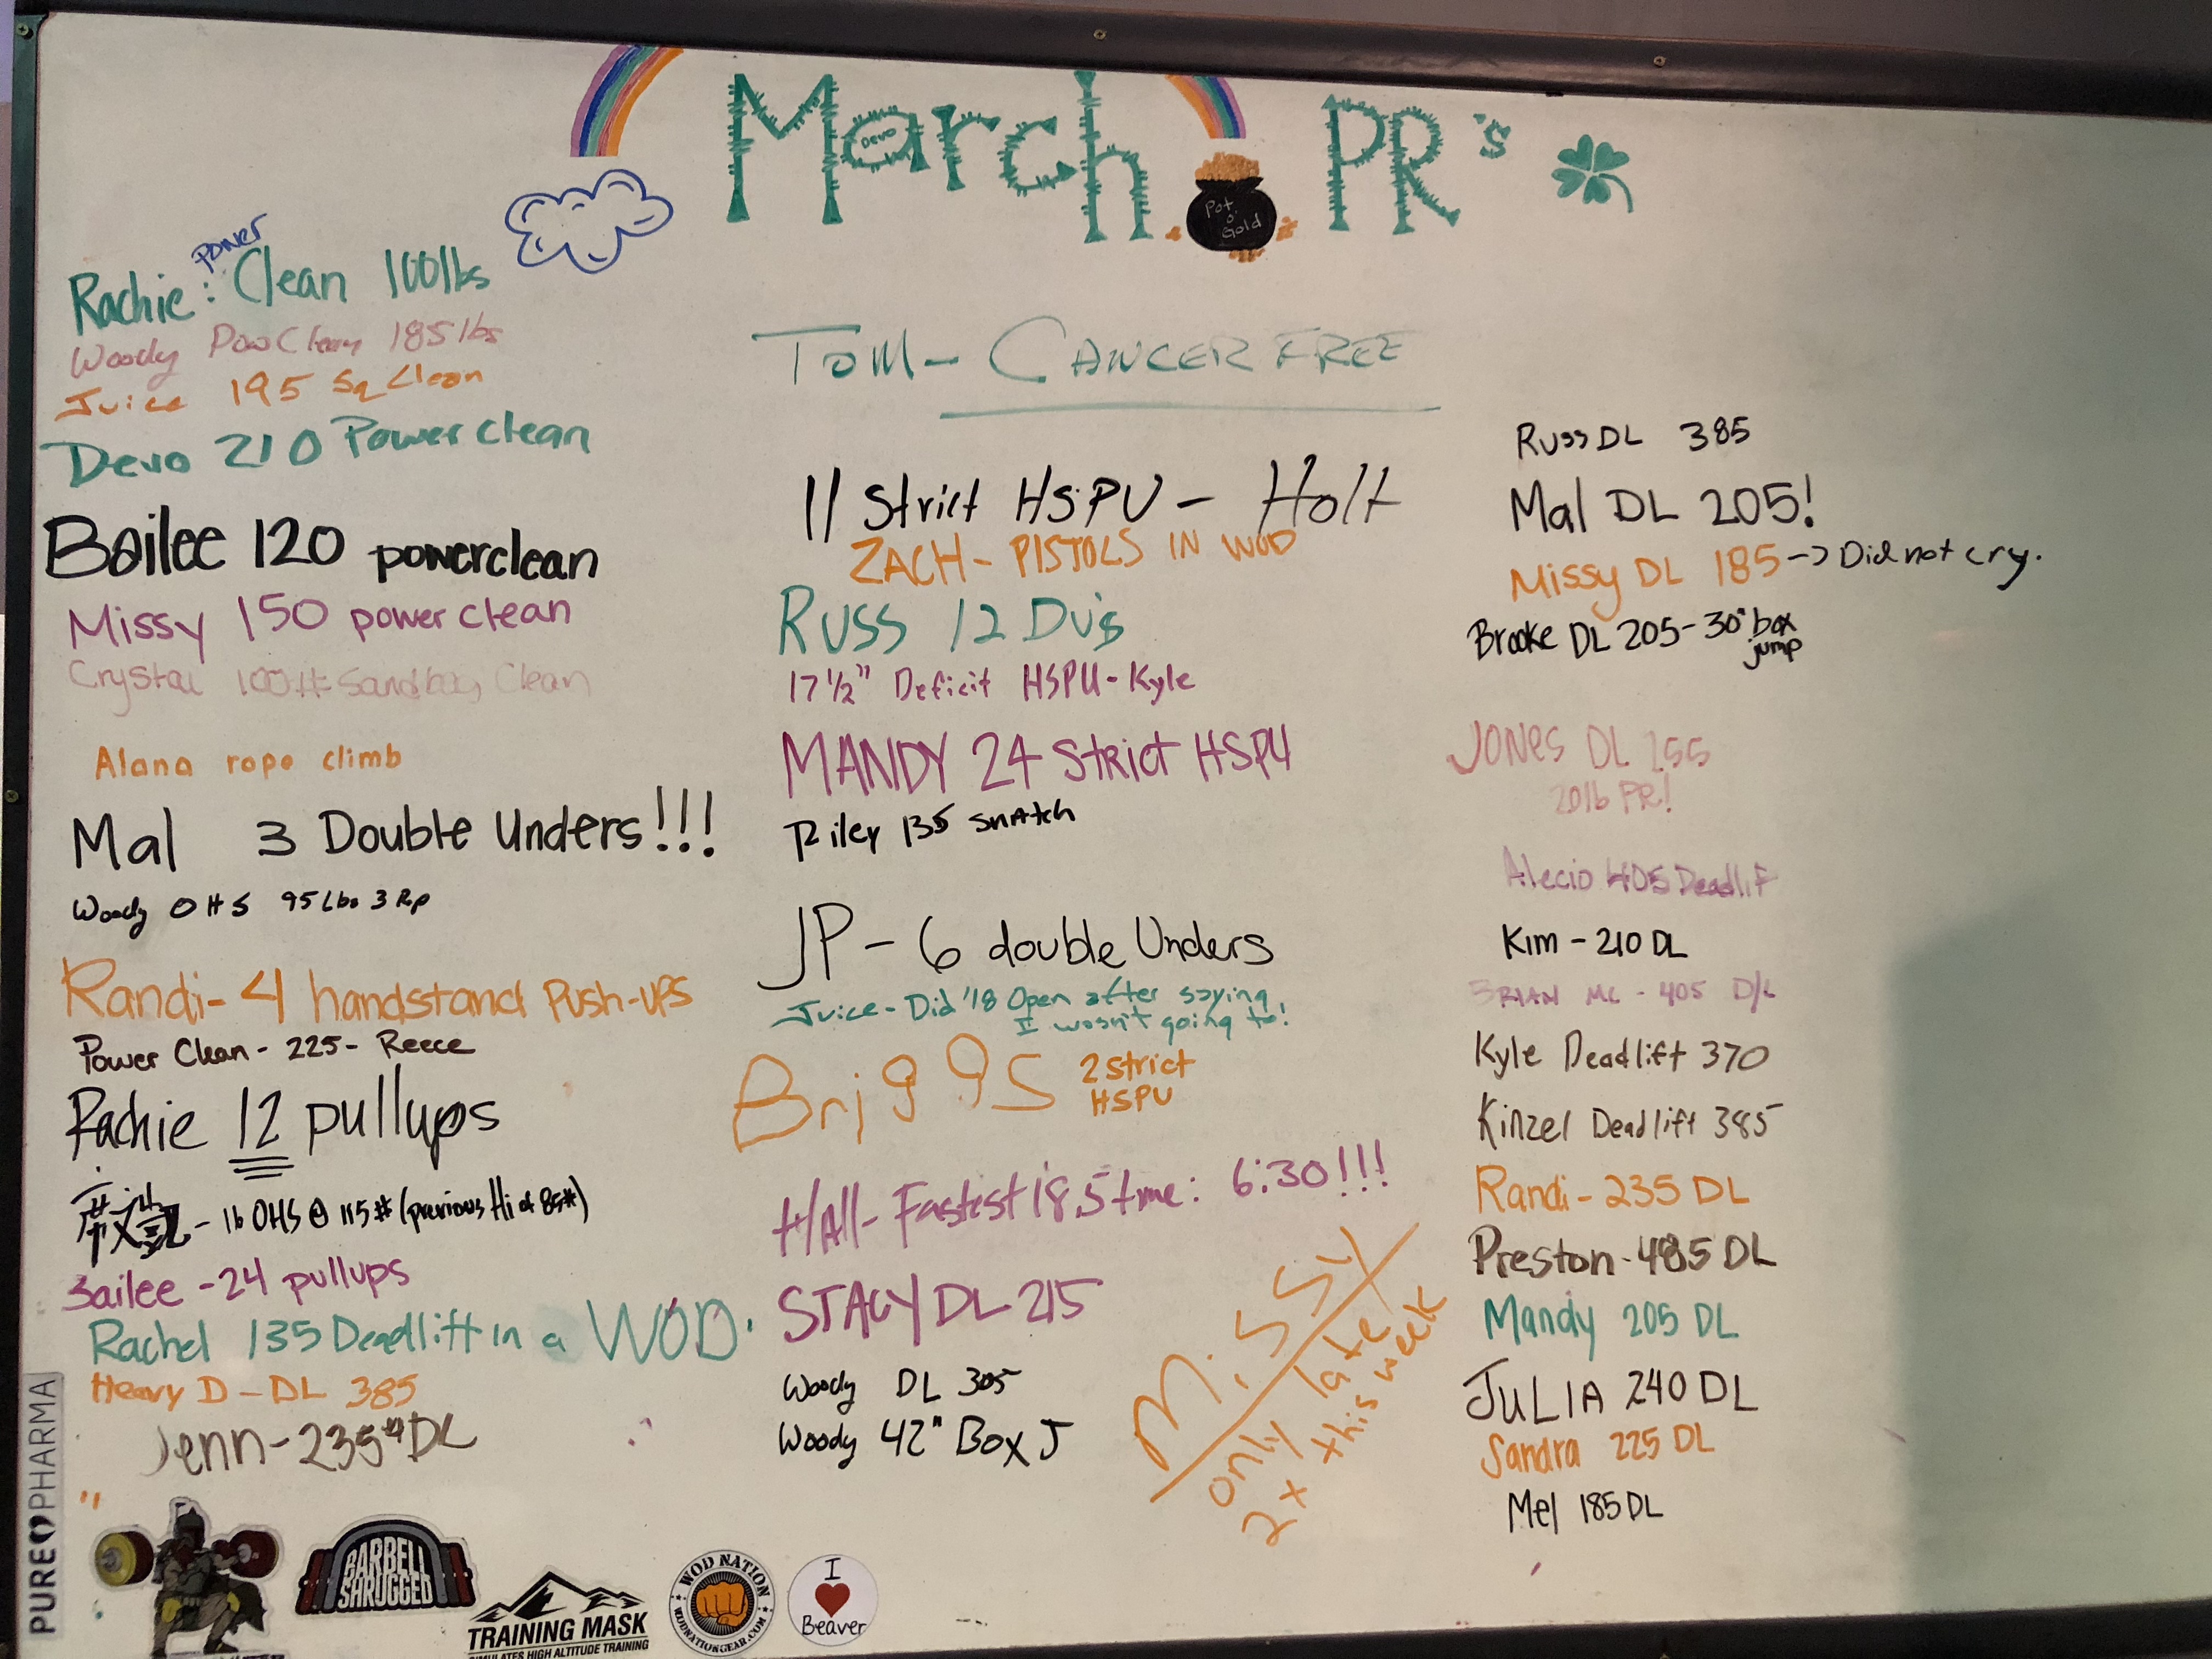 March PR's
Devo
Pot
o'
Gold
power
Rachie: Clean 100lbs
Woody Pow Clean 185 lbs
Juice 195 Sq Clean
Devo 210 Power clean
Bailee 120 powerclean
Missy 150 power clean
Crystal 100# Sandbag Clean
Alana rope climb
Mal 3 Double Unders!!!
Woody OHS 95 Lbs 3 Rp
Randi- 4 handstand Push-ups
Power Clean - 225 - Reece
Rachie 12 pullups
- 16 OHS @ 115# (previous Hi of 85#)
Bailee - 24 pullups
Rachel 135 Deadlift in a WOD.
Heavy D - DL 385
Jenn - 235# DL
TOM - CANCER FREE
11 Strict HSPU - Holt
ZACH - PISTOLS IN WOD
RUSS 12 Du's
17 1/2" Deficit HSPU - Kyle
MANDY 24 Strict HSPU
Riley 135 snatch
JP - 6 double Unders
Juice - Did '18 Open after saying
I wasn't going to!
Briggs 2 strict
HSPU
HAll - Fastest 18.5 time: 6:30!!!
STACY DL 215
Woody DL 305
Woody 42" Box J
Missy
only late
2x this week
Russ DL 385
Mal DL 205!
Missy DL 185 -> Did not cry.
Brooke DL 205 - 30" box
jump
JONES DL 255
2016 PR!
Alecio 405 Deadlift
Kim - 210 DL
BRIAN MC - 405 D/L
Kyle Deadlift 370
Kinzel Deadlift 385
Randi - 235 DL
Preston - 485 DL
Mandy 205 DL
JULIA 240 DL
Sandra 225 DL
Mel 185 DL
PURE PHARMA
BARBELL
SHRUGGED
TRAINING MASK
SIMULATES HIGH ALTITUDE TRAINING
WOD NATION
WODNATIONGEAR.COM
I
Beaver